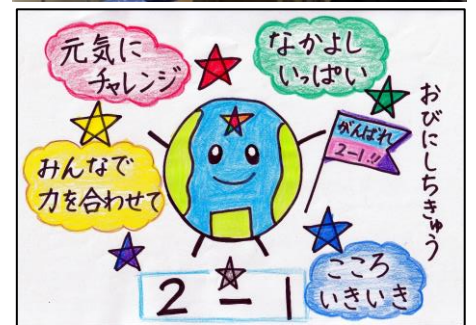 元気に
チャレンジ
なかよし
いっぱい
みんなで
力を合わせて
がんばれ
2-1!!
おびにしちきゅう
こころ
いきいき
2-1